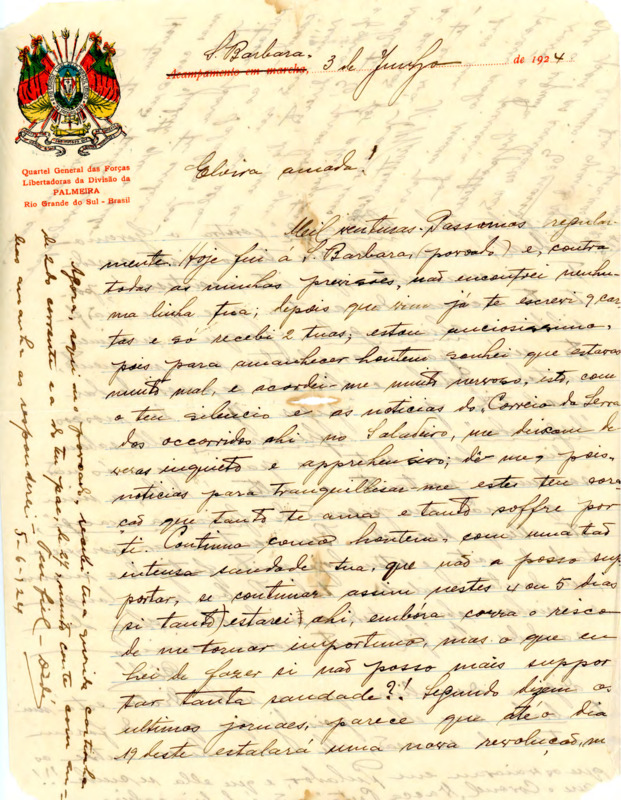 S. Barbara.
Acampamento em marcha, 3 de Junho de 1924
Quartel General das Forças
Libertadoras da Divisão da
PALMEIRA
Rio Grande do Sul - Brasil
Elvira amada!
Mil venturas. Passamos regular-
mente. Hoje fui á S. Barbara, (povoado) e, contra
todas as minhas previsões, não encontrei nenhu-
ma linha tua; depois que vim já te escrevi 9 car-
tas e só recebi 2 tuas; estou anciosissimo,
pois para amanhecer hontem sonhei que estavas
muito mal, e acordei-me muito nervoso, isto, com
o teu silencio e as noticias do "Correio da Serra
dos occorridos ahi no Saladeiro, me deixam de
veras inquieto e apprehensivo; dê-me, pois,
noticias para tranquilhisar-me este teu cora-
ção que tanto te ama e tanto soffre por
ti. Continuo como hontem, com uma tão
intensa saudade tua, que não a posso sup-
portar, se continuar assim nestes 4 ou 5 dias
(si tanto) estarei ahi, embóra corra o risco
de me tornar importuno, mas o que eu
hei de fazer si não posso mais suppor
tar tanta saudade?! Segundo dizem os
ultimos jornaes, parece que até o dia
19 deste estalará uma nova revolução, n
Agora, aqui no povoado, recebi tua querida cartinha
de 2 do corrente e a do teu pae, de 27, muito contente com am-
bas amanhã as responderei. - Teu fiel -
5-6-924